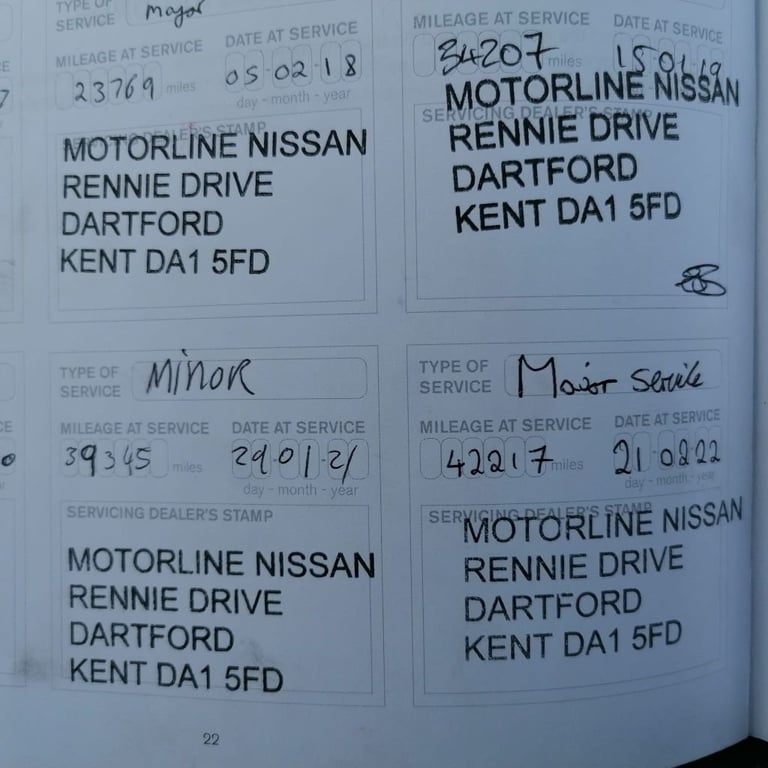 TYPE OF SERVICE Major
MILEAGE AT SERVICE DATE AT SERVICE
23769 miles 05-02-18
day - month - year
SERVICING DEALER'S STAMP
MOTORLINE NISSAN
RENNIE DRIVE
DARTFORD
KENT DA1 5FD
MILEAGE AT SERVICE DATE AT SERVICE
34207 miles 15-01-19
SERVICING DEALER'S STAMP
MOTORLINE NISSAN
RENNIE DRIVE
DARTFORD
KENT DA1 5FD
TYPE OF SERVICE MINOR
MILEAGE AT SERVICE DATE AT SERVICE
39345 miles 29-01-21
day - month - year
SERVICING DEALER'S STAMP
MOTORLINE NISSAN
RENNIE DRIVE
DARTFORD
KENT DA1 5FD
TYPE OF SERVICE Major Service
MILEAGE AT SERVICE DATE AT SERVICE
42217 miles 21 02 22
day - month - year
SERVICING DEALER'S STAMP
MOTORLINE NISSAN
RENNIE DRIVE
DARTFORD
KENT DA1 5FD
22